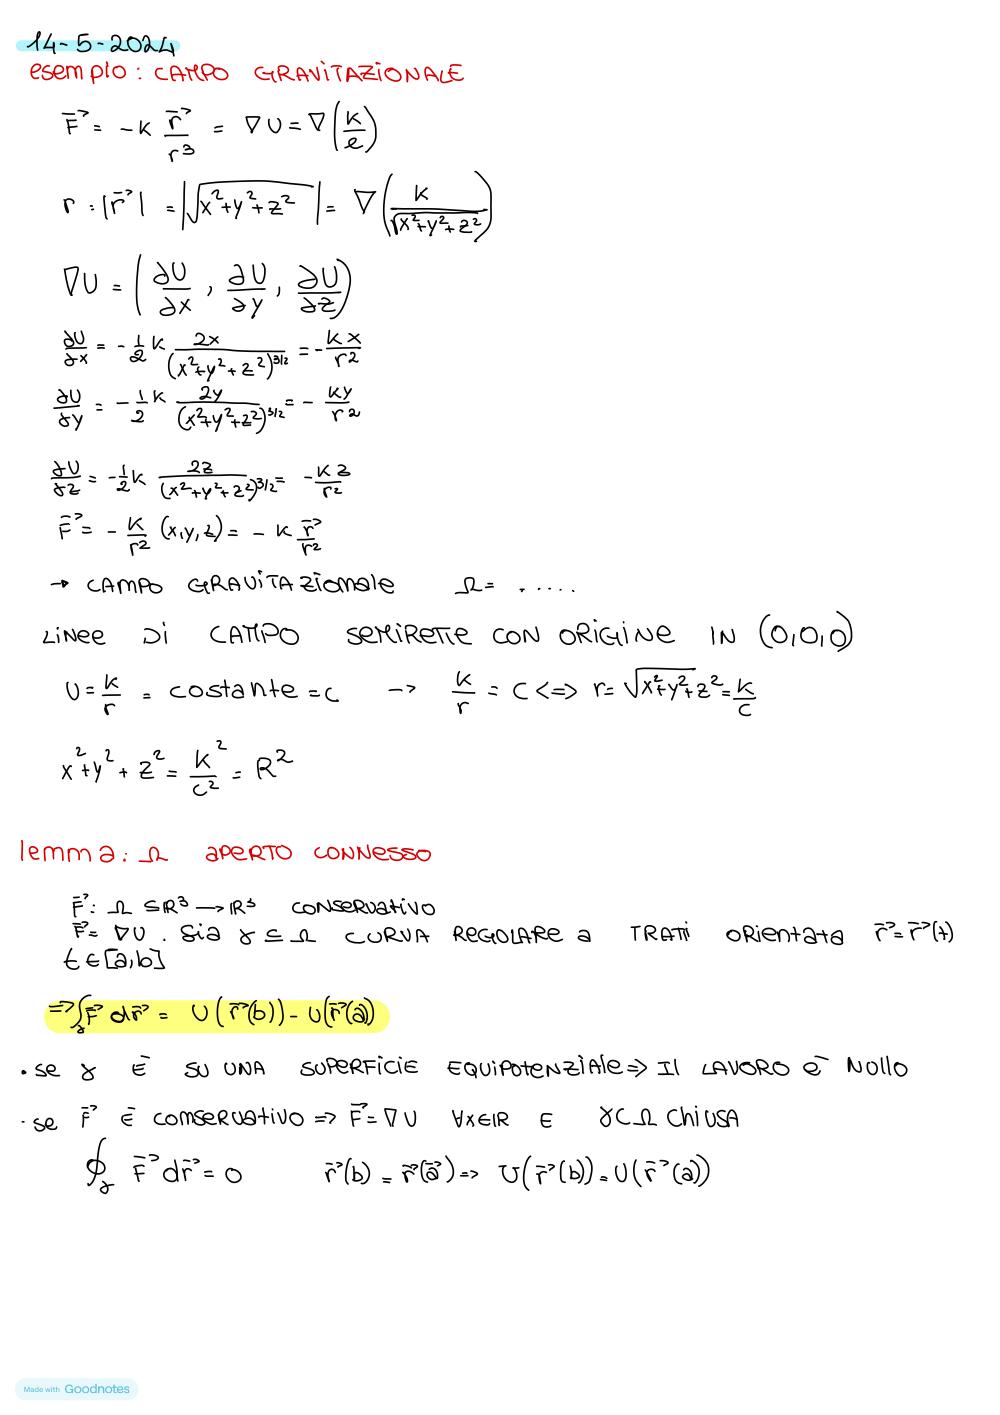 14-5-2024
esempio: CAMPO GRAVITAZIONALE
F⃗ = -K r⃗/r³ = ∇U = ∇(K/e)
r = |r⃗| = |√(x²+y²+z²)| = ∇(K/√(x²+y²+z²))
∇U = (∂U/∂x, ∂U/∂y, ∂U/∂z)
∂U/∂x = -1/2 K 2x/(x²+y²+z²)^3/2 = -Kx/r²
∂U/∂y = -1/2 K 2y/(x²+y²+z²)^3/2 = -Ky/r²
∂U/∂z = -1/2 K 2z/(x²+y²+z²)^3/2 = -Kz/r²
F⃗ = -K/r² (x,y,z) = -K r⃗/r²
→ CAMPO GRAVITAZIONALE Ω = .....
LINEE DI CAMPO SEMIRETTE CON ORIGINE IN (0,0,0)
U = K/r = costante = C → K/r = C <=> r = √(x²+y²+z²) = K/C
x²+y²+z² = K²/C² = R²
lemma: Ω APERTO CONNESSO
F⃗: Ω ⊆ ℝ³ → ℝ³ CONSERVATIVO
F⃗ = ∇U. Sia γ ⊆ Ω CURVA REGOLARE a TRATTI Orientata r⃗ = r⃗(t)
t ∈ [a,b]
=> ∫γ F⃗ dr⃗ = U(r⃗(b)) - U(r⃗(a))
• se γ È SU UNA SUPERFICIE EQUIPOTENZIALE => Il LAVORO è Nullo
• se F⃗ È conservativo => F⃗ = ∇U ∀x∈ℝ E γ⊂Ω ChiUSA
∮γ F⃗ dr⃗ = 0 r⃗(b) = r⃗(a) => U(r⃗(b)) = U(r⃗(a))
Made with Goodnotes